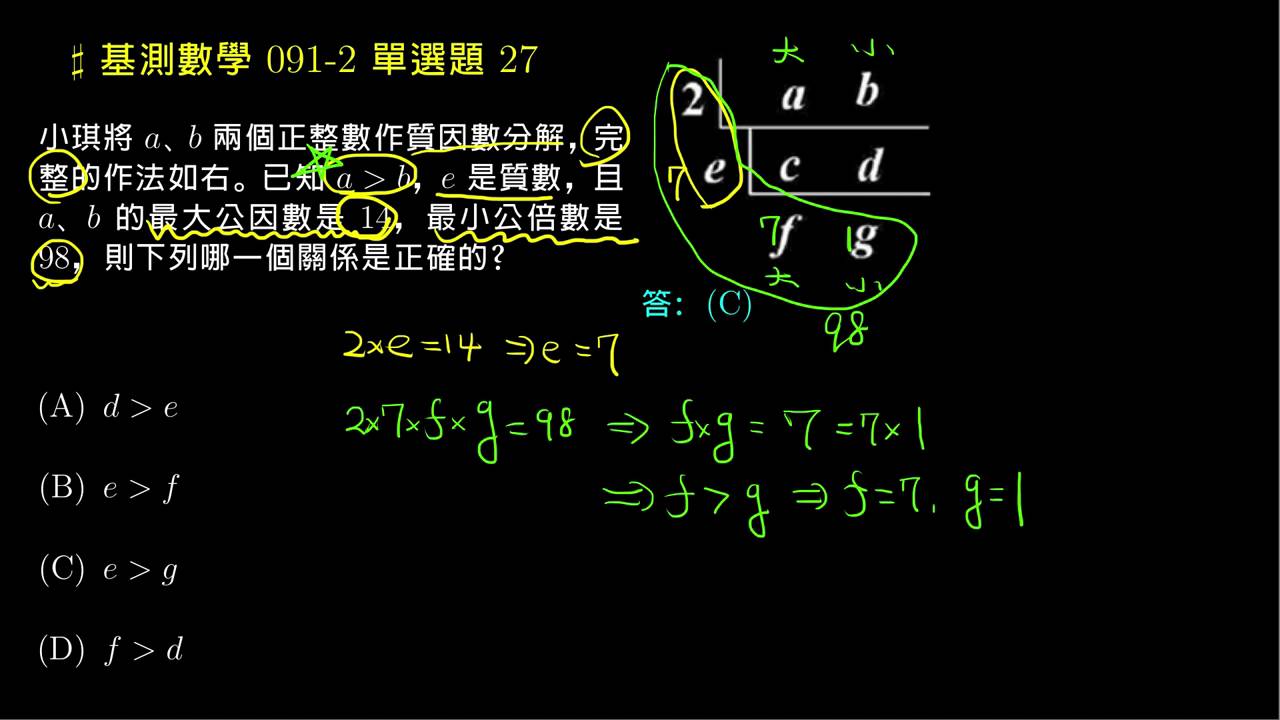 ♯ 基測數學 091-2 單選題 27
小琪將 a、b 兩個正整數作質因數分解，完
整的作法如右。已知 a > b，e 是質數，且
a、b 的最大公因數是 14，最小公倍數是
98，則下列哪一個關係是正確的？
大 小
2 a b
7 e c d
7f 1g
大 小
98
答：(C)
2×e=14 ⇒e=7
2×7×f×g=98 ⇒ f×g=7=7×1
⇒f>g ⇒f=7, g=1
(A) d > e
(B) e > f
(C) e > g
(D) f > d